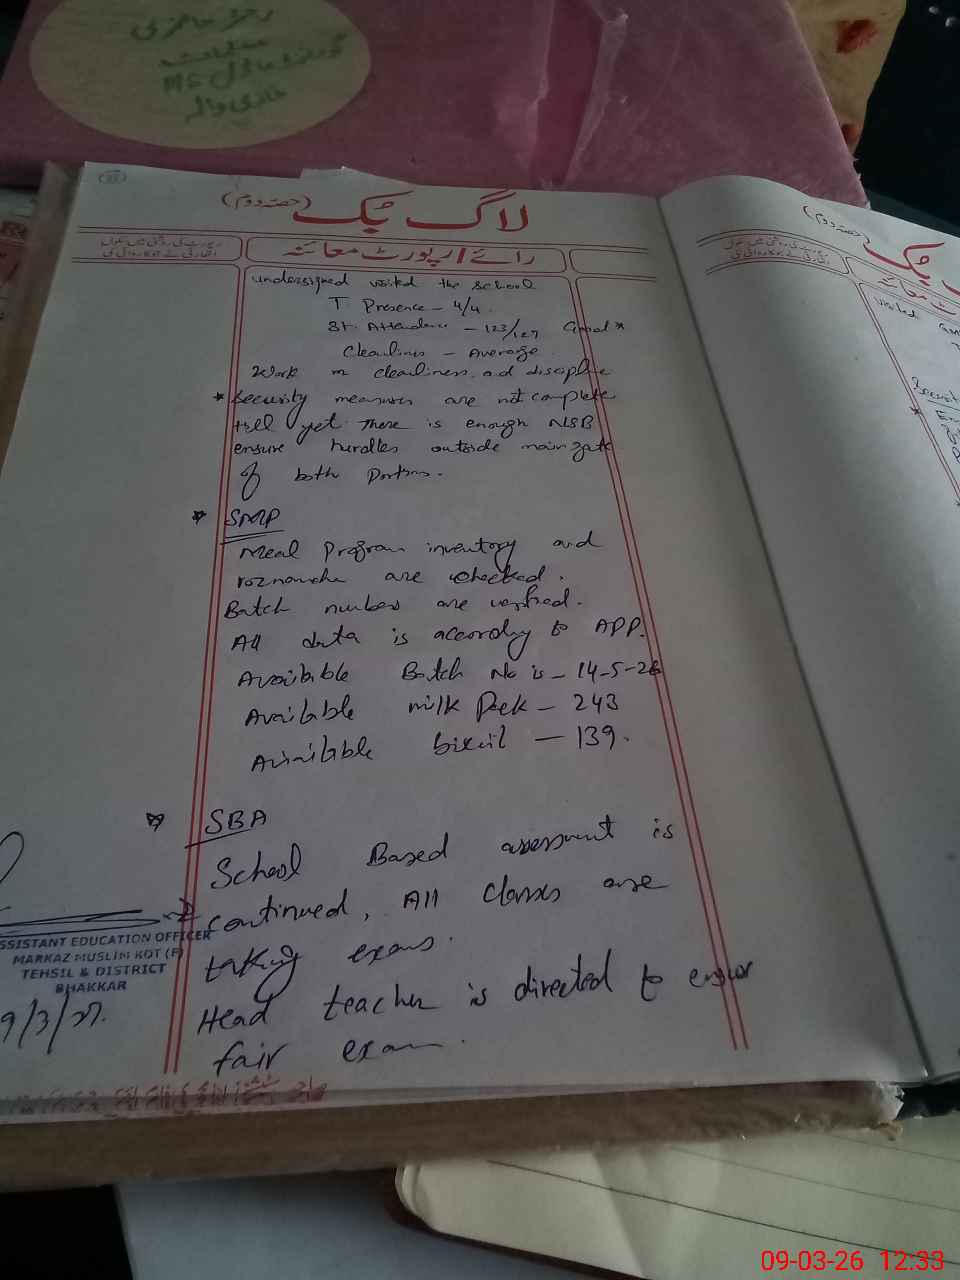 رجسٹر حاضری
MS
لاگ بک (حصہ دوم)
رائے / رپورٹ معائنہ
رپورٹ کی روشنی میں سکول
اتھارٹی نے جو کاروائی کی
undersigned visited the school
T. Presence - 4/4.
St. Attendance - 123/127 Good *
Cleanliness - Average
Work on cleanliness and discipline
* Security measures are not complete
till yet. There is enough NSB
ensure hurdles outside main gate
of both Portions.
* SMP
Meal Program inventory and
roznamcha are checked.
Batch numbers are verified.
All data is according to APP.
Available Batch No is - 14-5-26
Available milk Pack - 243
Available - 139.
* SBA
School Based assessment is
continued, All classes are
taking exams.
Head teacher is directed to ensure
fair exam.
ASSISTANT EDUCATION OFFICER
MARKAZ MUSLIM KOT (F)
TEHSIL & DISTRICT
BHAKKAR
حصہ دوم
visited
09-03-26 12:33